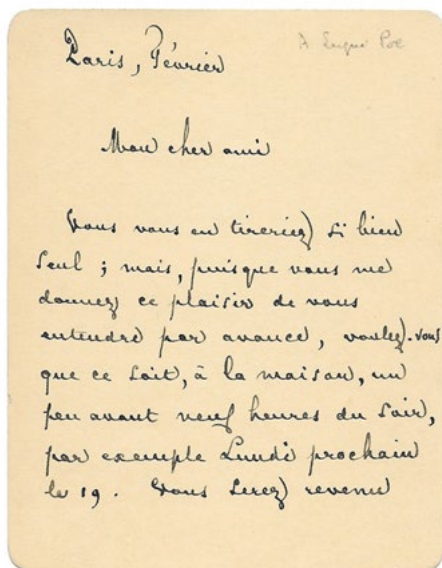 À Lugné Poe
Paris, Février
Mon cher ami
Vous vous en tireriez si bien
seul ; mais, puisque vous me
donnez ce plaisir de vous
entendre par avance, voulez-vous
que ce soit, à la maison, un
peu avant neuf heures du soir,
par exemple Lundi prochain
le 19. Vous serez revenu